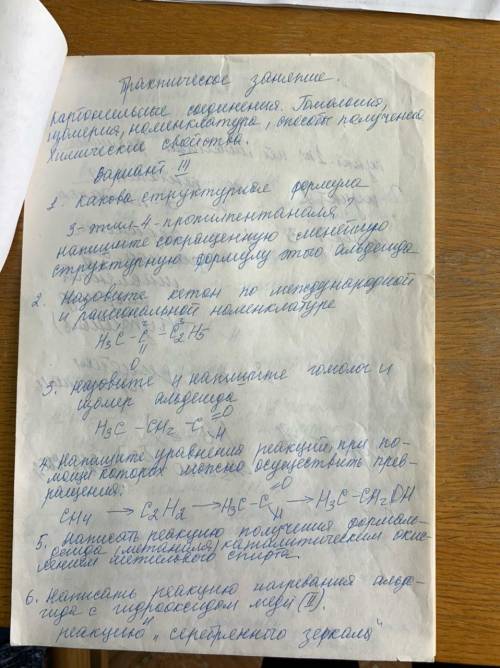 Практическое занятие.
Карбонильные соединения. Гомология,
изомерия, номенклатура, способы получения
Химические свойства.
Вариант III
1. Какова структурная формула
3-этил-4-пропилпентаналя
напишите сокращенную
структурную формулу этого альдегида
2. Назовите кетон по международной
и рациональной номенклатуре
1 2 3
H3C - C - C2H5
||
O
3. Назовите и напишите гомолог и
изомер альдегида
H3C - CH2 - C =O
H
4. Напишите уравнения реакций, при по-
мощи которых можно осуществить прев-
ращения:
CH4 → C2H2 → H3C - C =O → H3C - CH2OH
H
5. Написать реакцию получения формаль-
дегида (метаналя) каталитическим окис-
лением метилового спирта.
6. Написать реакцию нагревания альде-
гида с гидроксидом меди (II).
реакцию "серебрянного зеркала"